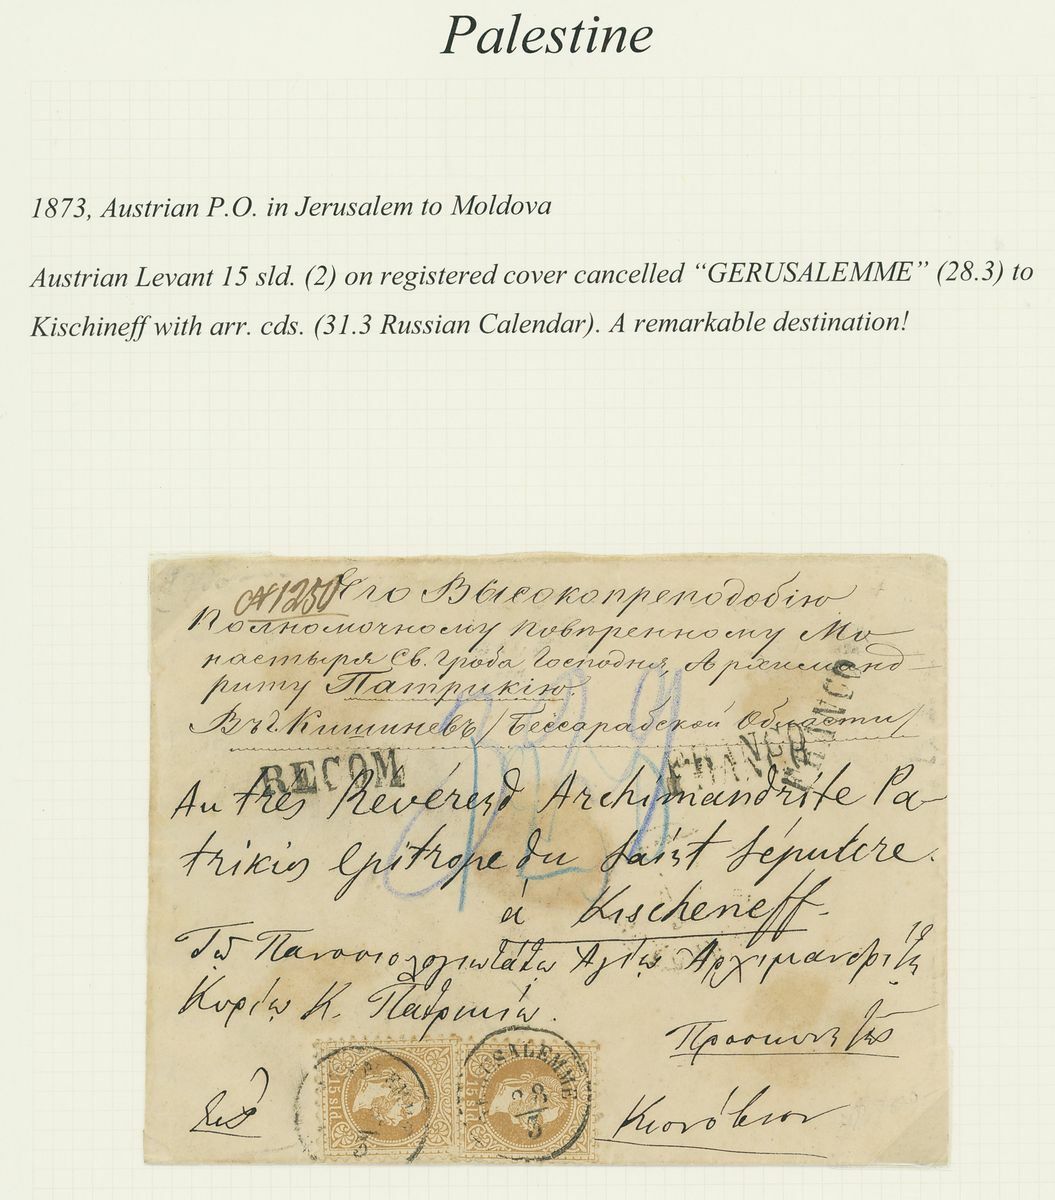 Palestine
1873, Austrian P.O. in Jerusalem to Moldova
Austrian Levant 15 sld. (2) on registered cover cancelled “GERUSALEMME” (28.3) to
Kischineff with arr. cds. (31.3 Russian Calendar). A remarkable destination!
№1250 Его Высокопреподобію
Полномочному Повѣренному Мо
настыря Св. Гроба Господня, Архиманд-
риту Патрикію.
Въ г. Кишиневъ /Бессарабской Области/
FRANCO
RECOM
FRANCO
Au très Révérend Archimandrite Pa-
trikios Epitrope du Saint Sépulcre.
à Kischeneff.
Τῷ Πανοσιολογιωτάτῳ Ἁγίῳ Ἀρχιμανδρίτῃ
Κυρίῳ Κ. Πατρικίῳ.
Εἰς
15 sld
28
3
15 sld
3